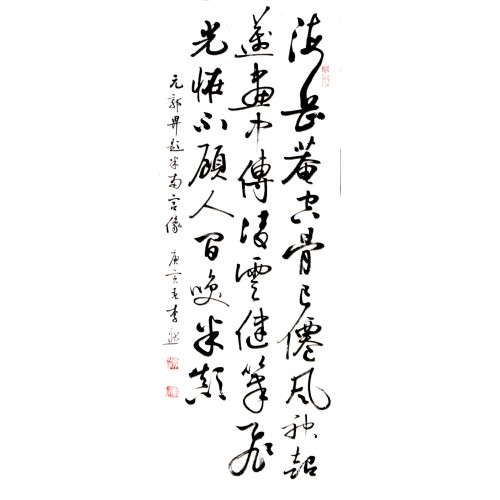 海岳菴空骨已僊風神超
邁畫中傳凌雲健筆飛
光怪不顧人間喚米顛
元郭畀題米南宮像 庚寅春李